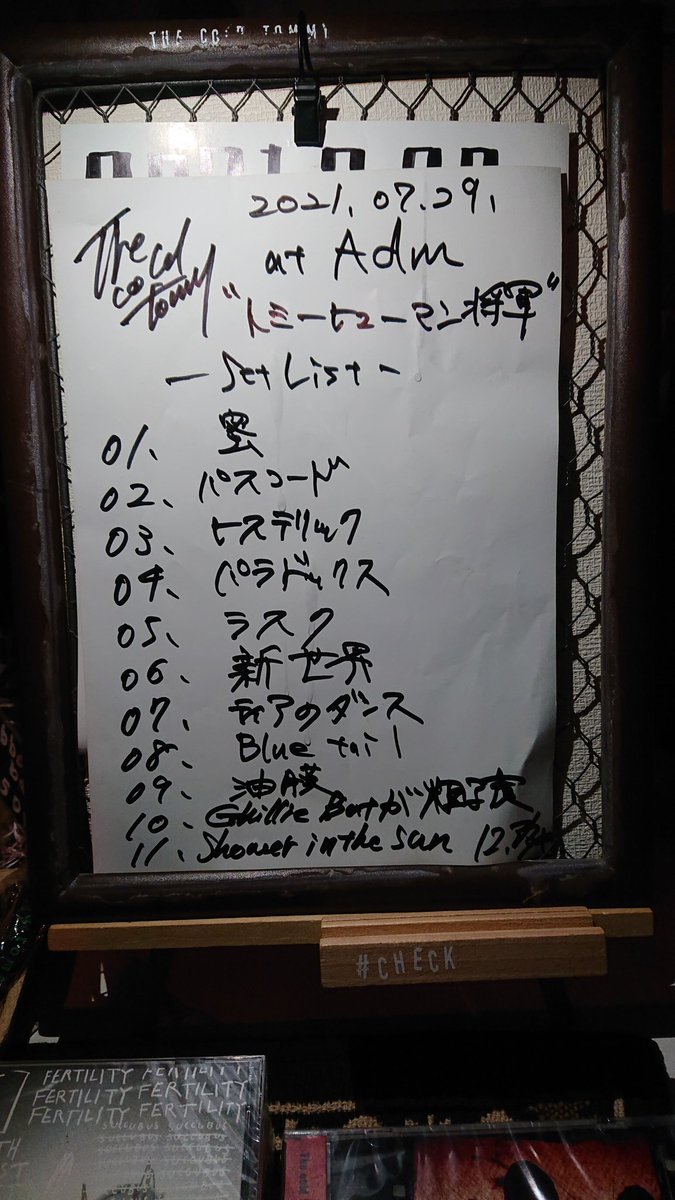 THE COLD TOMMY
2021.07.29.
The cold tommy
at Adm
"トミーヒューマン将軍"
- Set List -
01、蜜
02、パスコード
03、ヒステリック
04、パラドックス
05、ラスク
06、新世界
07、ティアのダンス
08、Blue tail
09、油膜
10、
11、Shower in the sun 12.
#CHECK
FERTILITY FERTILITY
FERTILITY FERTILITY
FERTILITY FERTILITY
SUCCUBUS SUCCUBUS